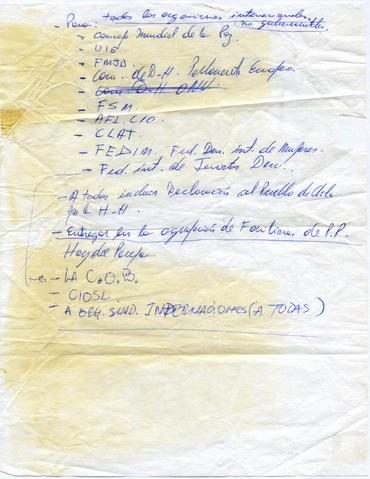 - Para: todos los organismos internacionales
no gubernamentales.
- Consejo Mundial de la Paz
- UIE
- FMJD.
- Com. de D-H. Parlamento Europeo.
- Com. D-H. ONU.
- FSM.
- AFL CIO.
- CLAT.
- FEDIM. Fed. Dem. Int. de Mujeres.
- Fed. int. de Dem...
- A todos incluir Declaración al Pueblo de Chile
H-H.
- Entregar en la ocupación de Familiares de P.P.
- LA C.O.B.
- CIOSL.
- A ORG. SIND. INTERNACIONES (A TODAS)